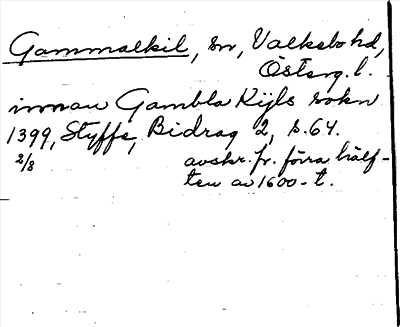 Gammalkil, sn, Valkebo hd,
Östergl.
innan Gambla Kijls sokn
1399, Styffe, Bidrag 2, s. 64.
2/8 avskr. fr. förra hälf-
ten av 1600-t.